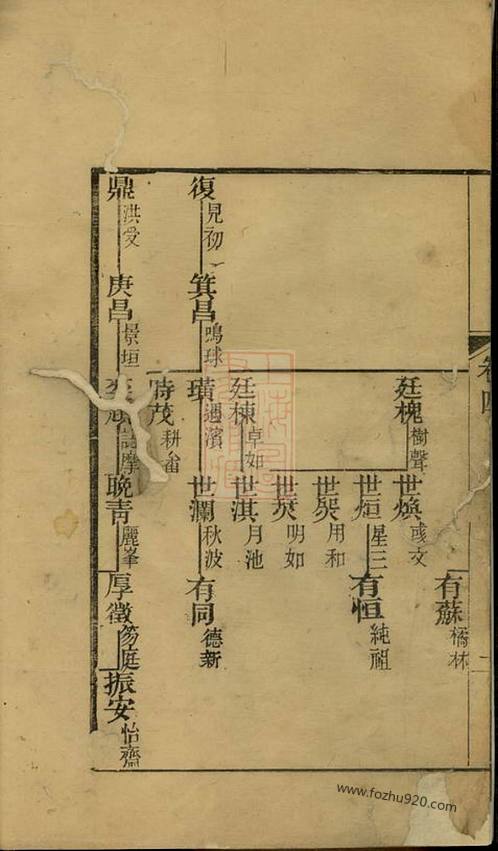 卷四
有蘇橘林
廷槐樹聲
世煥彧文
世烜星三
有恒純祖
世㷂用和
世焭明如
廷棟卓如
世淇月池
復見初
箕昌鳴球
璜遇濱
世瀾秋波
有同德新
時茂耕畬
鼎洪受
庚昌景垣
詰摩
晚青麗峯
厚徵笏庭
振安怡齋
www.fozhu920.com